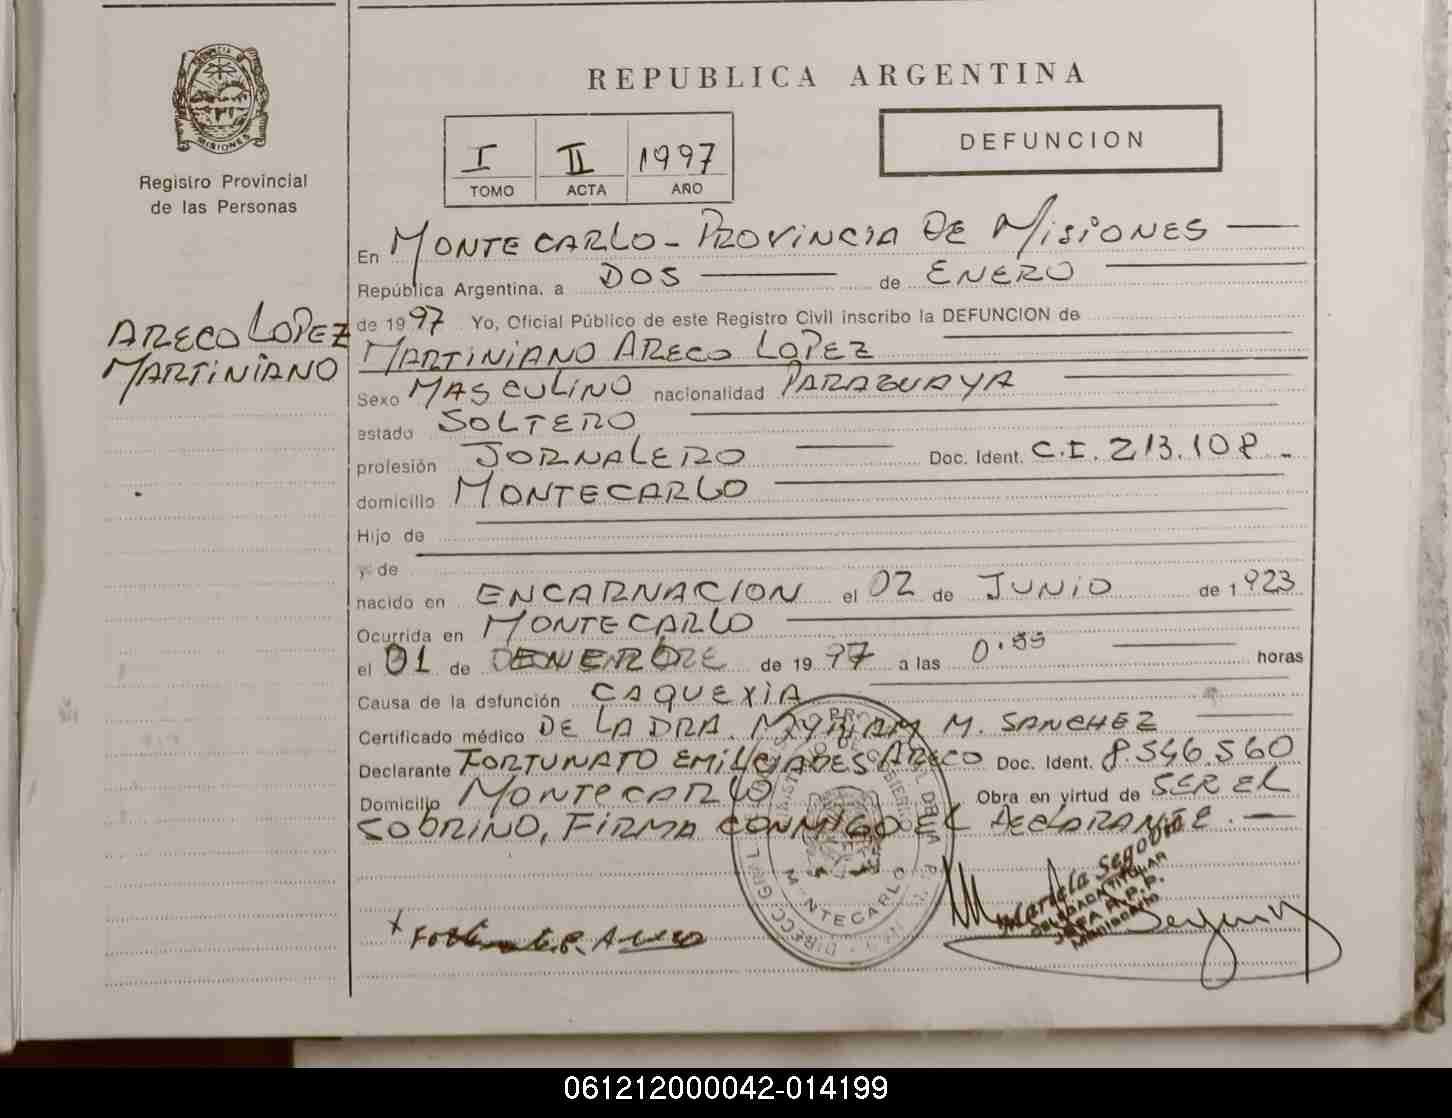 PROVINCIA DE
MISIONES
Registro Provincial
de las Personas
ARECO LOPEZ
MARTINIANO
REPUBLICA ARGENTINA
I II 1997
TOMO ACTA AÑO
DEFUNCION
En MONTECARLO - PROVINCIA DE MISIONES
República Argentina, a DOS de ENERO
de 1997 Yo, Oficial Público de este Registro Civil inscribo la DEFUNCION de
MARTINIANO ARECO LOPEZ
Sexo MASCULINO nacionalidad PARAGUAYA
estado SOLTERO
profesión JORNALERO Doc. Ident. C.I. 213.108 -
domicilio MONTECARLO
Hijo de
y de
nacido en ENCARNACION el 02 de JUNIO de 1923
Ocurrida en MONTECARLO
el 01 de de 1997 a las horas
Causa de la defunción CAQUEXIA
Certificado médico DE LA DRA. MYRIAM M. SANCHEZ
Declarante FORTUNATO EMILCIADES ARECO Doc. Ident. 8.546.560
Domicilio MONTECARLO Obra en virtud de SER EL
SOBRINO, FIRMA CONMIGO EL DECLARANTE. -
MONTECARLO
Mariela Segovia
DELEGADA TITULAR
JEFA R.P.P.
Montecarlo
061212000042-014199